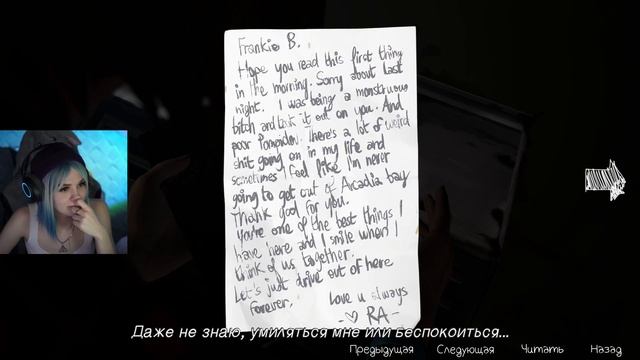 Frankie B.
Hope you read this first thing
in the morning. Sorry about last
night. I was being a monstruous
bitch and took it out on you. And
poor Pompidou. There's a lot of weird
shit going on in my life and
sometimes I feel like I'm never
going to get out of Arcadia bay
Thank god for you.
You're one of the best things I
have here and I smile when I
think of us together.
Let's just drive out of here
forever.
Love u always
- ♡ RA -
Даже не знаю, умиляться мне или беспокоиться...
Предыдущая Следующая Читать Назад